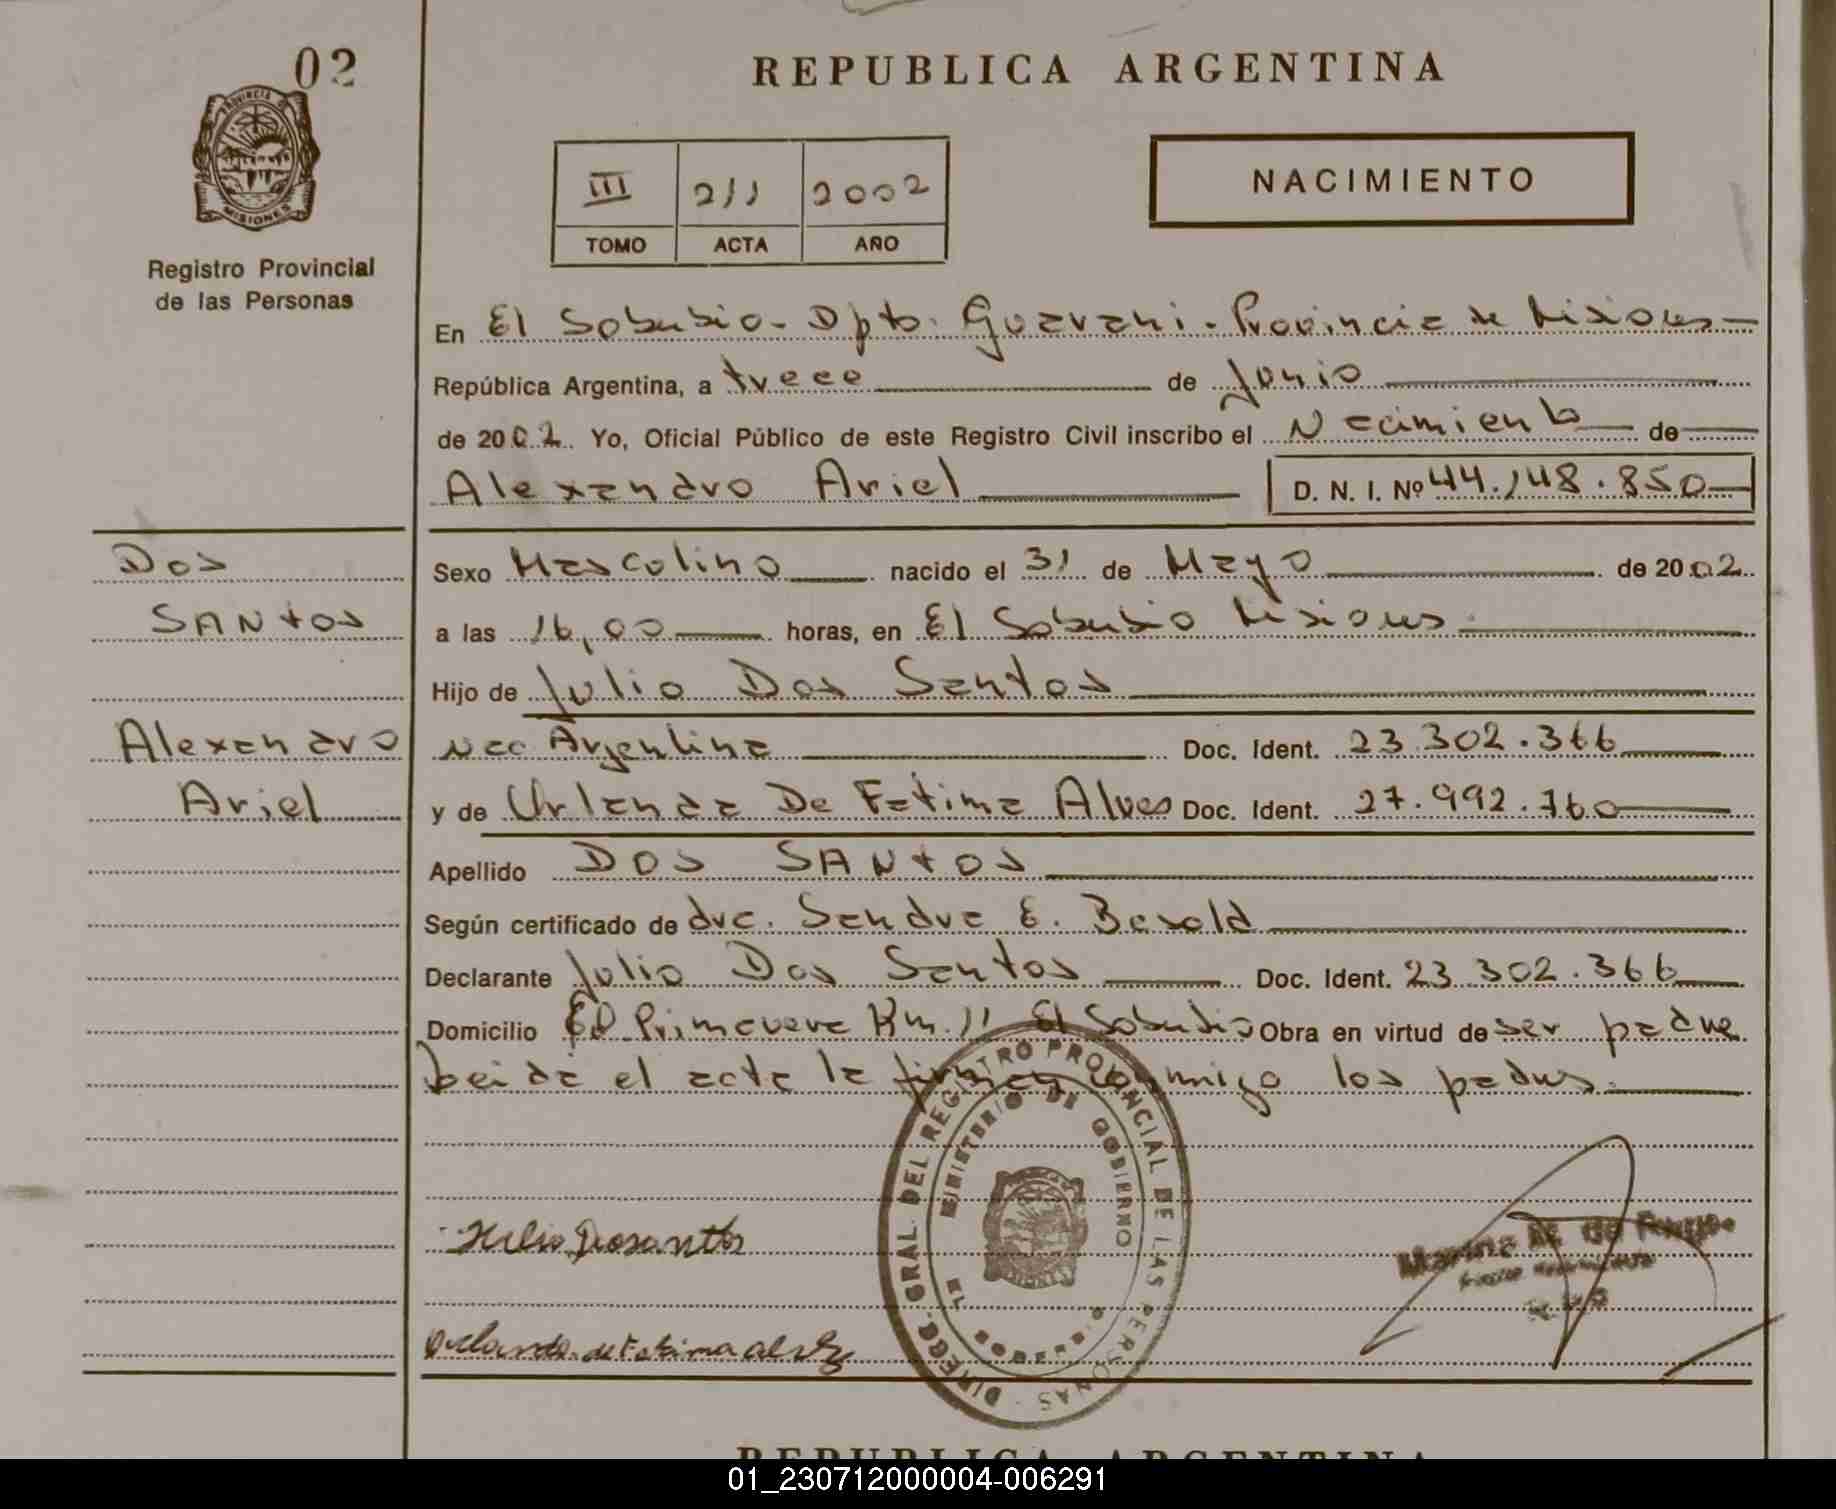 02
PROVINCIA DE
MISIONES
Registro Provincial
de las Personas
REPUBLICA ARGENTINA
III 211 2002
TOMO ACTA AÑO
NACIMIENTO
En El Soberbio - Dpto. Guarani - Provincia de Misiones
República Argentina, a trece de Junio
de 2002. Yo, Oficial Público de este Registro Civil inscribo el Nacimiento de
Alexandro Ariel D. N. I. Nº 44.148.850
Dos
SANtos
Alexandro
Ariel
Sexo Masculino nacido el 31 de Mayo de 2002
a las 16,00 horas, en El Soberbio Misiones
Hijo de Julio Dos Santos
Nac Argentina Doc. Ident. 23.302.366
y de Urlanda De Fatima Alves Doc. Ident. 27.992.760
Apellido DOS SANtOS
Según certificado de dra. Sandra E. Basold
Declarante Julio Dos Santos Doc. Ident. 23.302.366
Domicilio Primavera Km. 11 El Soberbio Obra en virtud de ser padre
Leida el acta la firman conmigo los padres.
DIRECC. GRAL. DEL REGISTRO PROVINCIAL DE LAS PERSONAS
MINISTERIO DE GOBIERNO
EL SOBERBIO
MISIONES
Julio Dosantos
Marina M. de
REPUBLICA ARGENTINA
01_230712000004-006291